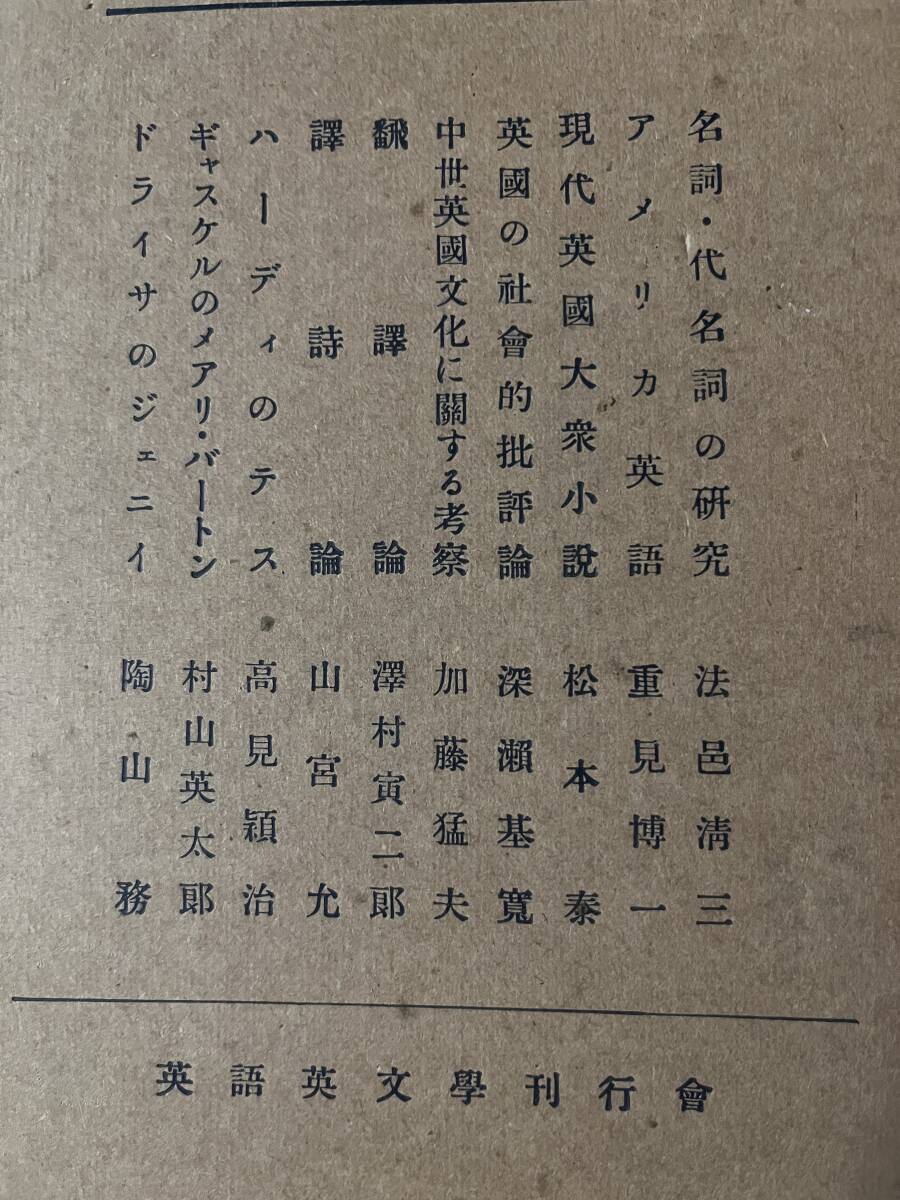 名詞・代名詞の研究 法邑淸三
アメリカ英語 重見博一
現代英國大衆小說 松本泰
英國の社會的批評論 深瀨基寬
中世英國文化に關する考察 加藤猛夫
飜譯論 澤村寅二郎
譯詩論 山宮允
ハーディのテス 高見穎治
ギャスケルのメアリ・バートン 村山英太郎
ドライサのジェニイ 陶山務
英語英文學刊行會